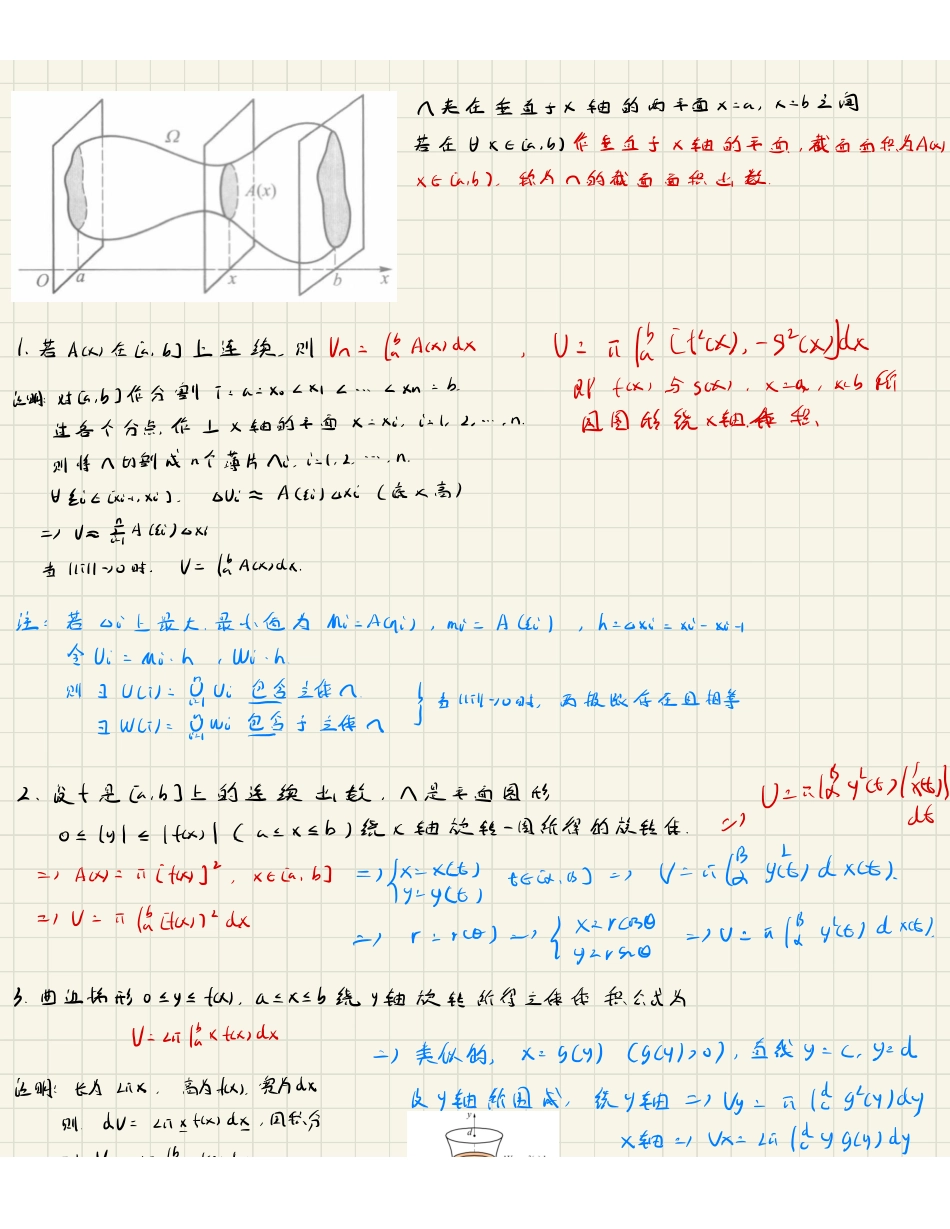 Ω夹在垂直于x轴的两平面x=a, x=b之间
若在∀x∈[a,b)作垂直于x轴的平面,截面面积为A(x)
x∈[a,b). 称为Ω的截面面积函数.
Ω
A(x)
O a x b x
1. 若A(x)在[a,b]上连续, 则 VΩ = ∫ₐᵇ A(x)dx , V = π∫ₐᵇ [f²(x), -g²(x)]dx
即 f(x) 与 g(x), x=a, x=b 所
围图形绕x轴体积、
证明: 对[a,b]作分割 T: a=x₀<x₁<⋯<xₙ=b.
过各个分点,作⊥x轴的平面 x=xᵢ, i=1, 2, ⋯, n.
则将Ω切割成n个薄片Ωᵢ, i=1, 2, ⋯, n.
∀ξᵢ∈[xᵢ₋₁, xᵢ]. ΔVᵢ ≈ A(ξᵢ)Δxᵢ (底×高)
=> V≈ ∑ᵢ₌₁ⁿ A(ξᵢ)Δxᵢ
当||T||→0时. V = ∫ₐᵇ A(x)dx.
注: 若Δᵢ上最大.最小值为 Mᵢ=A(ηᵢ), mᵢ=A(ξᵢ), h=Δxᵢ=xᵢ-xᵢ₋₁
令Uᵢ=Mᵢ·h, Wᵢ·h
则 ∃ U(T)= ∪ᵢ₌₁ⁿ Uᵢ 包含立体Ω
∃ W(T)= ∪ᵢ₌₁ⁿ Wᵢ 包含于立体Ω } 当||T||→0时, 两极限存在且相等
2. 设f是[a,b]上的连续函数, Ω是平面图形
0≤|y|≤|f(x)| (a≤x≤b)绕x轴旋转一周所得的旋转体.
=> V=π∫_α^β y²(t)|x'(t)|dt
=> A(x)=π[f(x)]², x∈[a,b] => {x=x(t) y=y(t) t∈[α,β] => V=π∫_α^β y²(t) d x(t).
=> V=π∫ₐᵇ [f(x)]² dx
=> r=r(θ) => { x=rcosθ y=rsinθ => V=π∫_α^β y²(t) d x(t).
3. 曲边梯形 0≤y≤f(x), a≤x≤b绕y轴旋转所得立体体积公式为
V=2π∫ₐᵇ x f(x)dx
=> 类似的, x=g(y) (g(y)>0), 直线 y=c, y=d
及y轴所围成, 绕y轴 => Vy=π∫_c^d g²(y)dy
x轴 => Vx=2π∫_c^d y g(y)dy
证明: 长为2πx, 高为f(x), 宽为dx
则 dV=2πx f(x)dx, 固积分
y
d